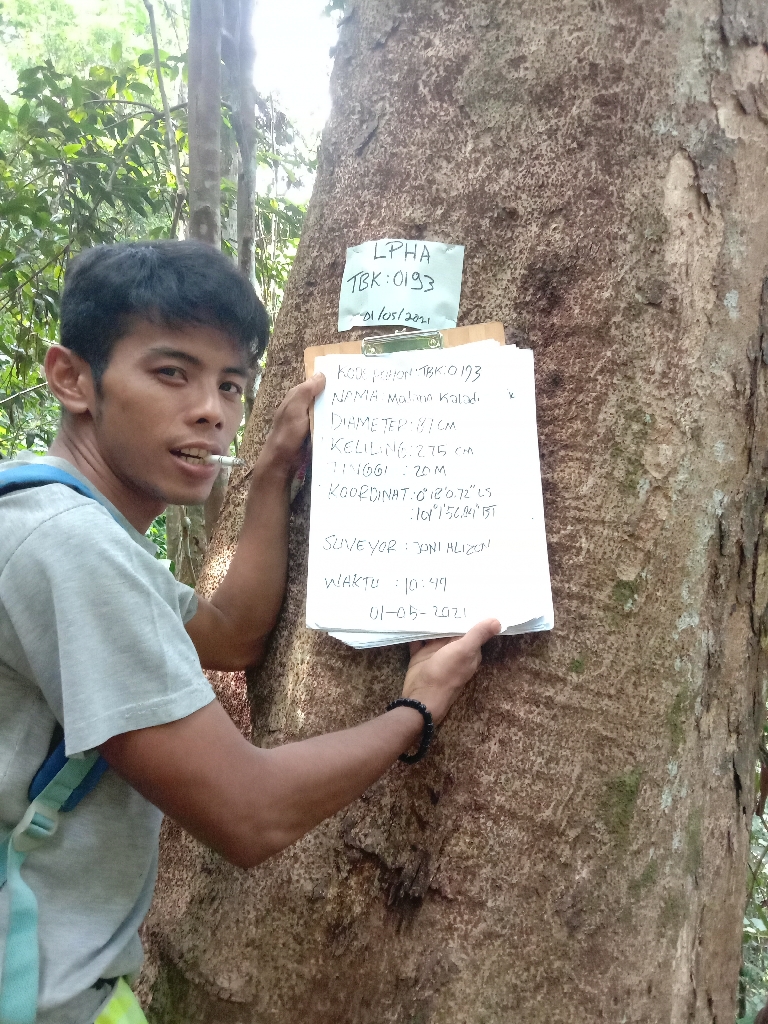 LPHA
TBK:0193
01/05/2021
KODE POHON:TBK:0193
NAMA Malinn Kaladi
DIAMETER:87 CM
KELILING:275 CM
TINGGI :20M
KOORDINAT:0°18'0.72" LS
:101°1'56.84" BT
SUVEYOR: JONI ALIZON
WAKTU :10:49
01-05-2021